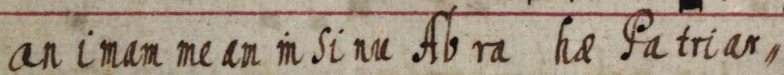 an imam me am in Si nu Ab ra hæ Pa tri ar〃